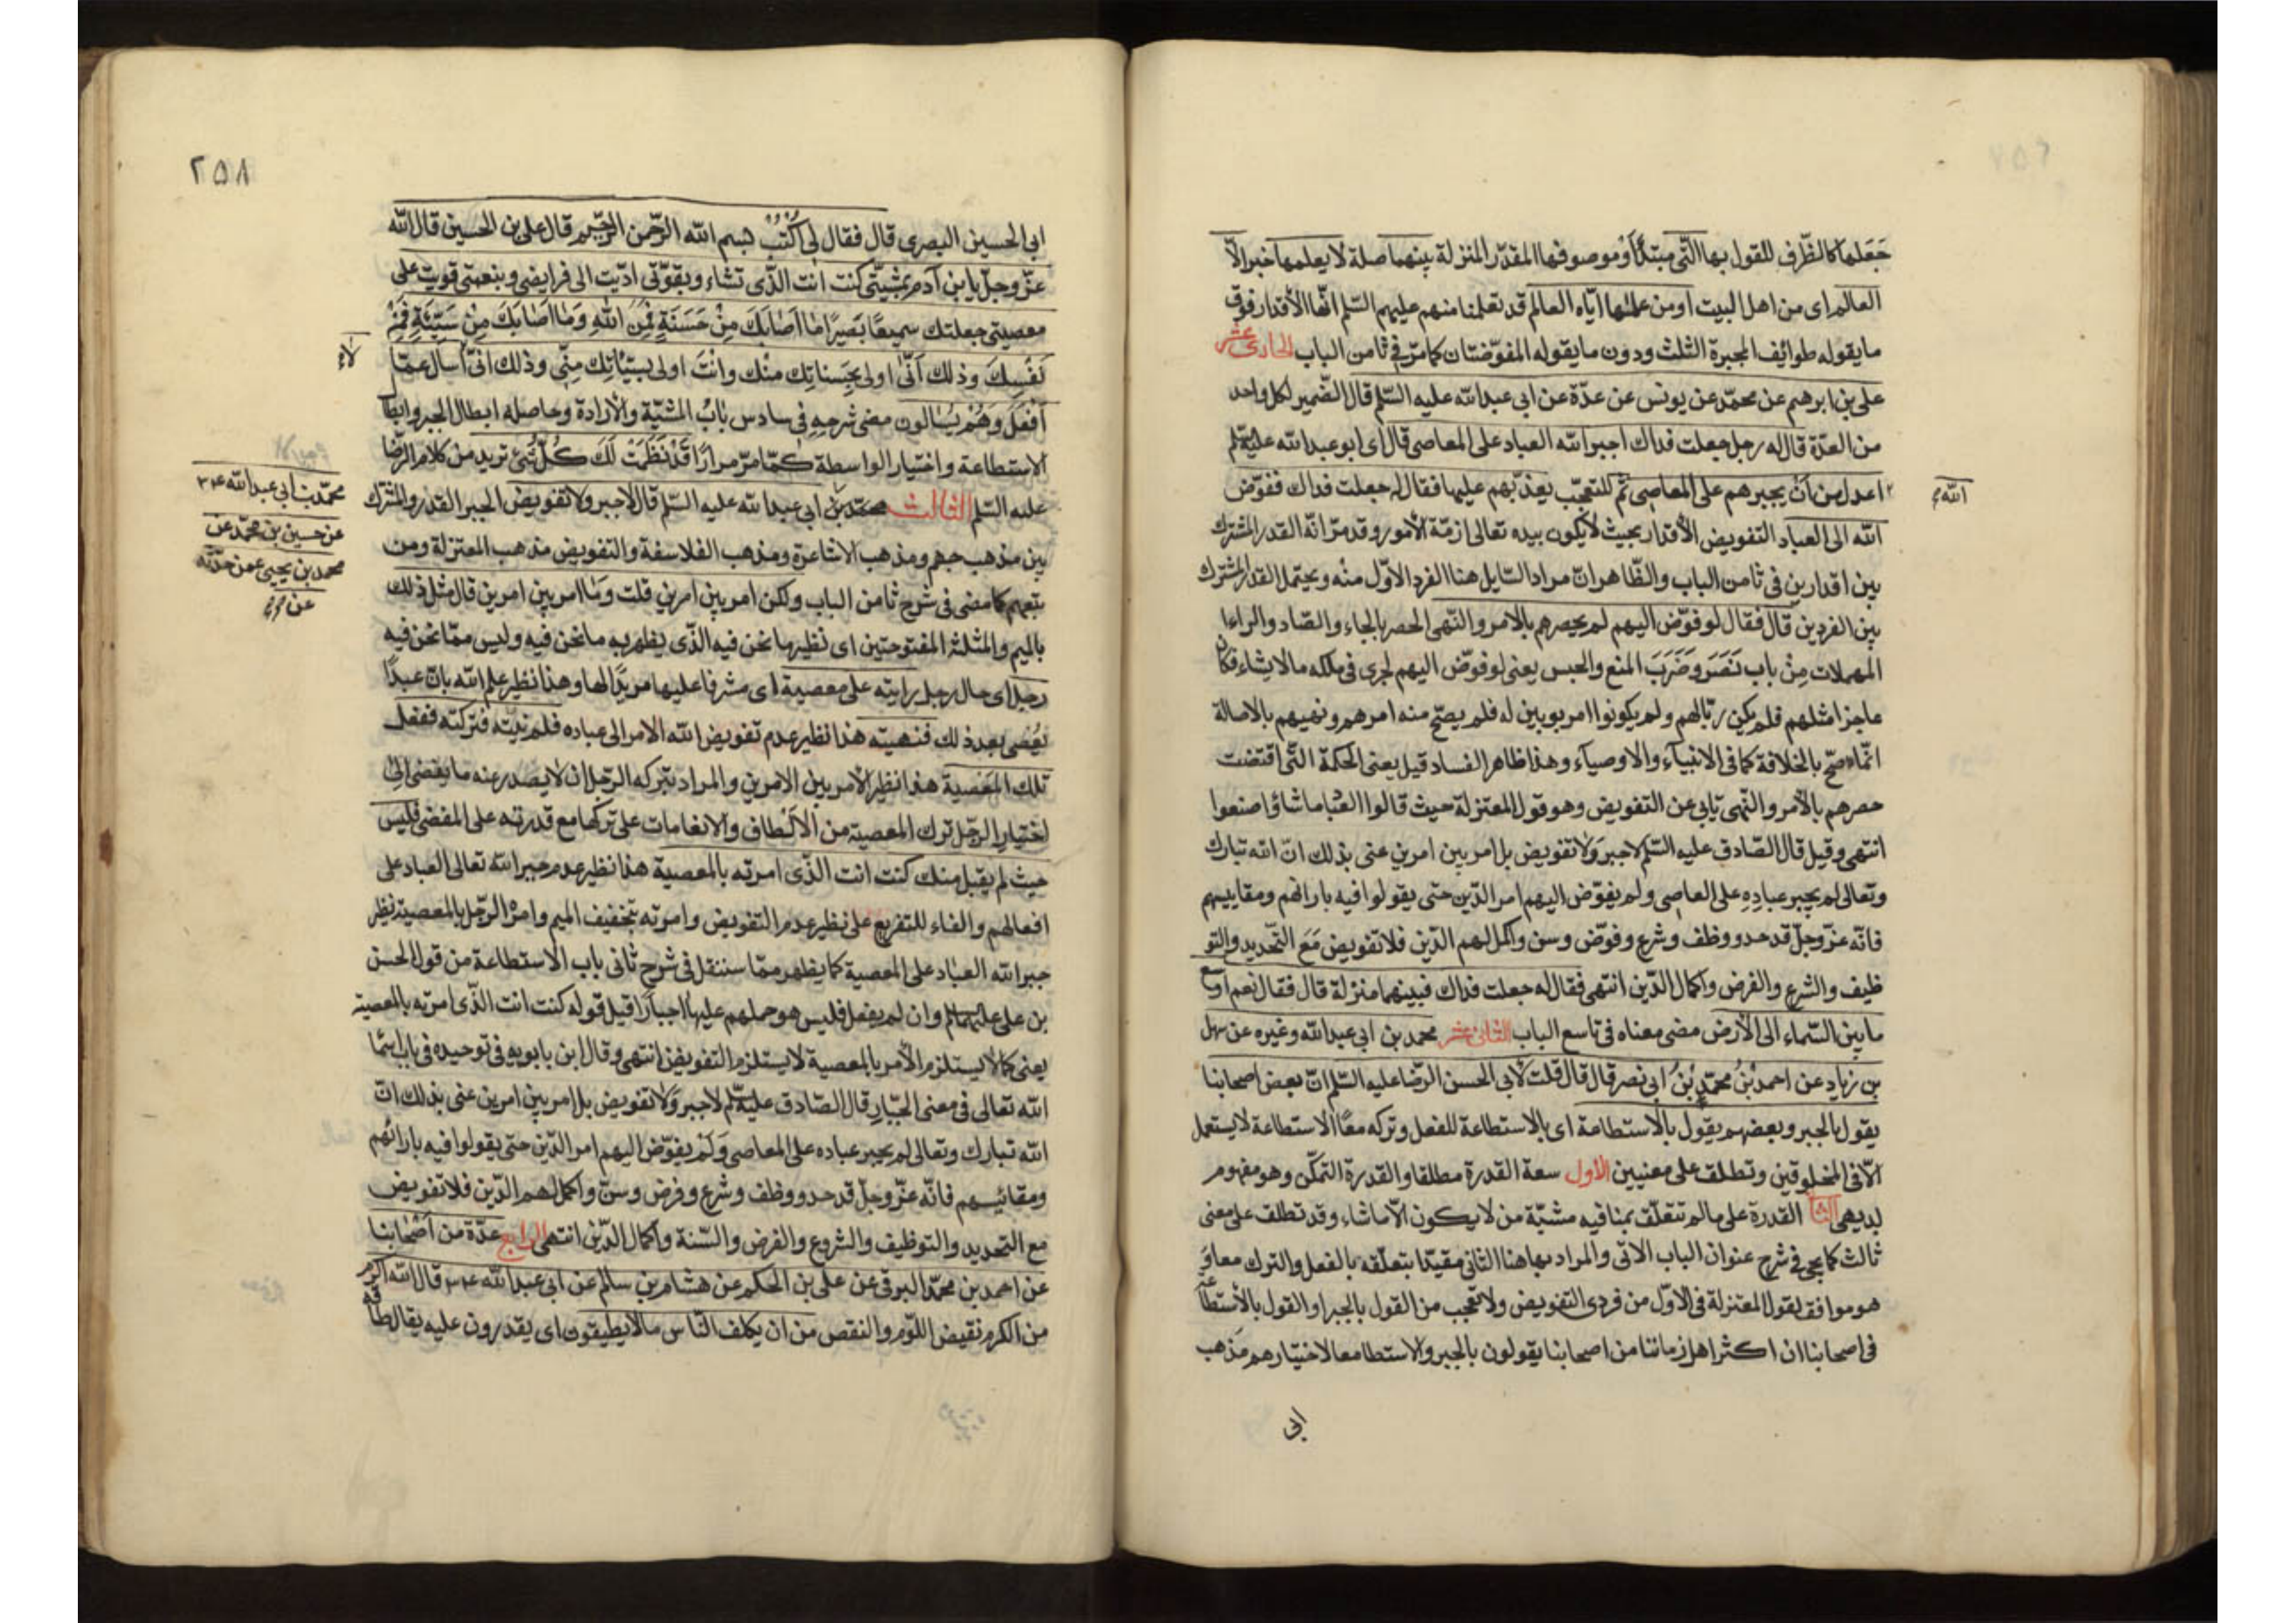 جَعَلها كالظّرف للقول بها الّتى مبتدأ وموصوفها المقدّر المنزلة بينهما صلة لا يعلمها خبر الّا
العالم اى من اهل البيت او من علمها ايّاه العالم قد تعلمنا منهم عليهم السّلم انّها الأقدار فوق
ما يقوله طوائف المجبرة الثلث ودون ما يقوله المفوّضتان كما مرّ فى ثامن الباب الحادى عشر
على بن ابرهيم عن محمّد عن يونس عن عدّة عن ابى عبد الله عليه السّلم قال الضّمير لكل واحد
من العدّة قال له رجل جعلت فداك اجبر الله العباد على المعاصى قال اى ابو عبد الله عليه السّلم
الله
اعدل من أن يجبرهم على المعاصى ثم للتعجّب يعذّبهم عليها فقال له جعلت فداك ففوّض
الله الى العباد التفويض الأقدار بحيث لا يكون بيده تعالى ازمّة الأمور وقد مرّ انّه القدر المشترك
بين اقدارين فى ثامن الباب والظّاهر انّ مراد السّايل هنا الفرد الاوّل منه ويحتمل القدر المشترك
بين الفردين قال فقال لو فوّض اليهم لم يحصرهم بالامر والنّهى الحصر بالحاء والصّاد والراء
المهملات مِنْ باب نَصَرَ وضَرَبَ المنع والحبس يعنى لو فوّض اليهم لجرى فى ملكه ما لا يشاء فكان
عاجزا مثلهم فلم يكن ربّا لهم ولم يكونوا مربوبين له فلم يصحّ منه امرهم ونهيهم بالاصالة
انّما صحّ بالخلافة كما فى الانبياء والاوصياء وهذا ظاهر الفساد قيل يعنى الحكمة الّتى اقتضت
حصرهم بالأمر والنّهى تابى عن التفويض وهو قول المعتزلة حيث قالوا العباد ما شاؤا صنعوا
انتهى وقيل قال الصّادق عليه السّلم لاجبر وَلا تفويض بل امر بين امرين عنى بذلك انّ الله تبارك
وتعالى لم يجبر عبادِهِ على المعاصى ولم يفوّض اليهم امر الدّين حتى يقولوا فيه بارائهم ومقاييسهم
فانّه عزّ وجلّ قد حدو ووظف وشرع وفوّض وسن واكمل لهم الدّين فلا تفويض مَعَ التّحديد والتو
ظيف والشرع والفرض واكمال الدّين انتهى فقال له جعلت فداك فبينهما منزلة قال فقال نعم اوسع
ما بين السّماء الى الأرض مضى معناه فى تاسع الباب الثانى عشر محمد بن ابى عبد الله وغيره عن سهل
بن زياد عن احمد بْنُ محمّد بْنُ ابى نصر قال قال قلت لأبى الحسن الرّضا عليه السّلم انّ بعض اصحابنا
يقول بالجبر وبعضهم يقول بالاستطاعة اى بالاستطاعة للفعل وتركه معًا الاستطاعة لا يستعمل
الّا فى المخلوقين وتطلق على معنيين الأول سعة القدرة مطلقا والقدرة التمكّن وهو مفهوم
بديهى الثا القدرة على ما لم تتعلّق بمنافيه مشيّة من لا يكون الّا ما شاء وقد تطلق على معنى
ثالث كما يجى فى شرح عنوان الباب الاتى والمراد بها هنا الثانى مقيّدا بتعلّقه بالفعل والترك معا و
هو موافق لقول المعتزلة فى الاوّل من فردى التفويض ولا تعجب من القول بالجبر او القول بالأستطاعة
فى اصحابنا ان اكثر اهل زماننا من اصحابنا يقولون بالجبر والاستطا معا لاختيارهم مَذهب
ابى
٢٥٨
ابى الحسين البصرى قال فقال لى اكتُبْ بسم الله الرّحمن الرّحيم قال على بن الحسين قال الله
عزّ وجلّ يا بن آدم بمشيّتى كنت انت الذّى تشاء وبقوّتى ادّيت الى فرايضى وبنعمتى قويت على
معصيتى جعلتك سميعًا بَصيرًا ما اَصابَكَ مِنْ حَسَنَةٍ فَمِنَ اللهِ وَما اَصابَكَ مِنْ سَيِّئَةٍ فَمِنْ
نَفْسِكَ وذلك اَنّى اولى بحسناتِك منْك وانْتَ اولى بسيّئاتِك مِنّى وذلك انّى اسأل عمّا
لا
اَفْعَل وَهُمْ يُسْالون مضى شرحهِ فى سادس بابُ المشيّة والأرادة وحاصله ابطال الجبر وابطا
الاستطاعة واختيار الواسطة كمّا مرّ مرارًا قَدْ نَظَمْتُ لَكَ كُلَّ شَىْءٍ تريد من كلام الرّضا
عليه السّلم الثالث محمّد بن ابى عبد الله عليه السّلم قال لاجبر ولا تفويض الجبر القدر والمشترك
محمّد بن ابى عبد الله
عن حسين بن محمّد عن
محمد بن يحيى عمن حدّثه
عن
بين مذهب جهم ومذهب الاشاعرة ومذهب الفلاسفة والتفويض مذهب المعتزلة ومن
تبعهم كما مضى فى شرح ثامن الباب ولكن امر بين امرين قلت وَما امر بين امرين قال مثل ذلك
بالميم والمثلثة المفتوحتين اى نظير ما نحن فيه الذّى يظهر به ما نحن فيه وليس ممّا نحن فيه
رجل اى حال رجل رايته على معصية اى مشرفا عليها مريدًا لها وهذا نظير علم الله بانّ عبدًا
يعْصى بعد ذلك فنهيته هذا نظير عدم تفويض الله الامر الى عباده فلم ينته فتركته ففعل
تلك المَعْصية هذا نظير الأمر بين الامرين والمراد بتركه الرّجل ان لا يصدر عنه ما يفضى الى
اختيار الرجل ترك المعصية من الاَلْطاف والانعامات على تركها مع قدرته على المفضى فليس
حيث لم يقبل منك كنت انت الذّى امرته بالمعصية هذا نظير عدم جبر الله تعالى العباد على
افعالهم والفاء للتفريع على نظير عدم التفويض وامرته بتخفيف الميم وامرْه الرّجل بالمعصية نظير
جبر الله العباد على المعصية كما يظهر ممّا سننقل فى شرح ثانى باب الاستطاعة من قول الحسن
بن على عليهما السلم وان لم يفعل فليس هو حملهم عليها اجبارًا قيل قوله كنت انت الذّى امرته بالمعصية
يعنى كما لا يستلزم الأمر بالمعصية لا يستلزم التفويض انتهى وقال ابن بابويه فى توحيده فى باب اسمَا
الله تعالى فى معنى الجبّار قال الصّادق عليه السّلم لاجبر وَلا تفويض بل امر بين امرين عنى بذلك انّ
الله تبارك وتعالى لم يجبر عباده على المعاصى وَلَمْ يفوّض اليهم امر الدّين حتى يقولوا فيه بارائهم
ومقائيسهم فانّه عزّ وجلّ قد حدو ووظف وشرع وفرض وسنّ واكمل لهم الدّين فلا تفويض
مع التحديد والتوظيف والشروع والفرض والسّنة واكمال الدّين انتهى الرابع عدّة من اَصْحابنا
عن احمد بن محمّد البرقى عن على بن الحكم عن هشام بن سالم عن ابى عبد الله قال الله اكرم
من الكرم نقيض اللّوم والنقص من ان يكلف النّاس ما لا يطيقون اى يقدرون عليه يقال طاقه